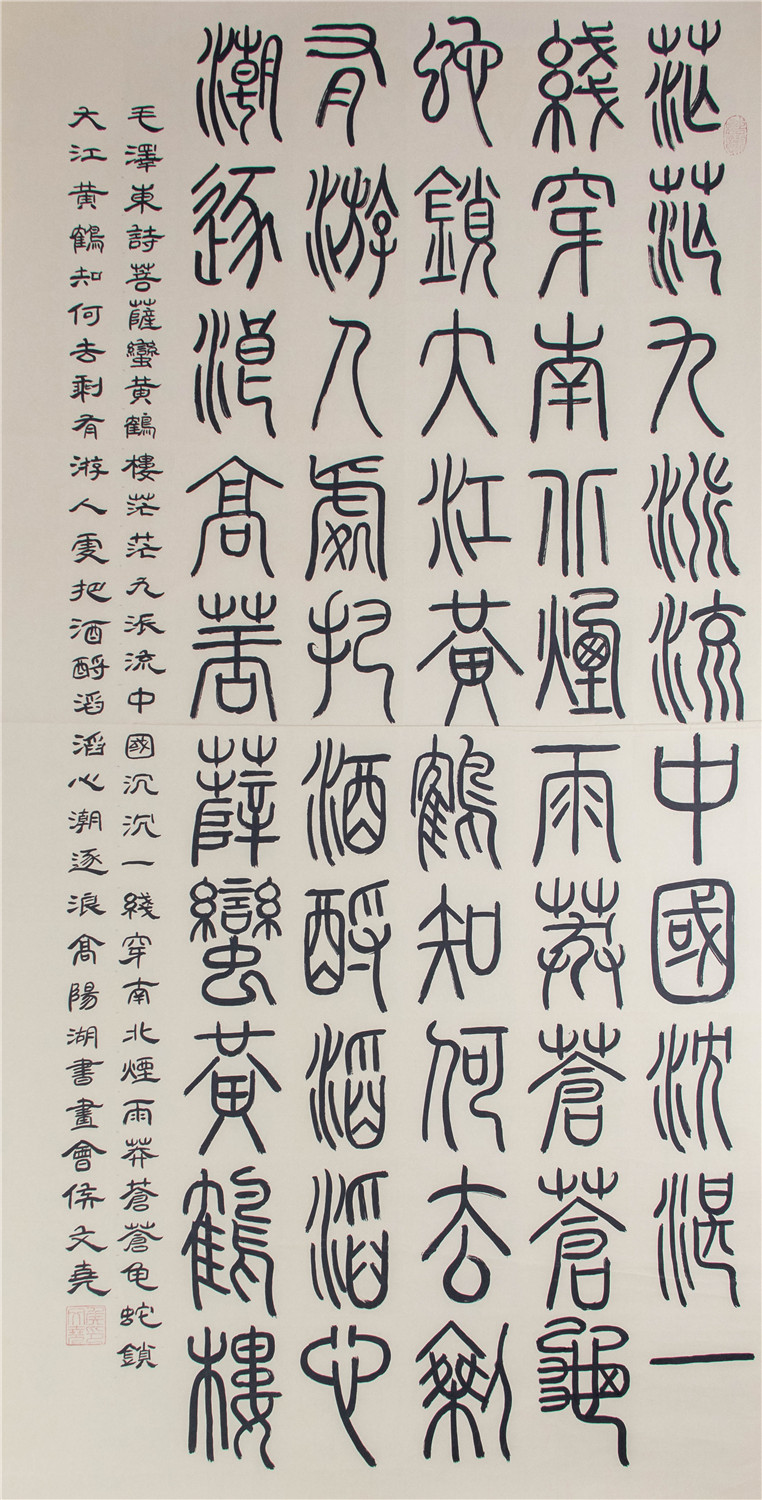 茫茫九派流中國沈湛一
綫穿南北煙雨莽蒼蒼龜
蛇鎖大江黃鶴知何去剩
有游人處把酒酹滔滔心
潮逐浪高菩薩蠻黃鶴樓
毛澤東詩菩薩蠻黃鶴樓茫茫九派流中國沉沉一綫穿南北煙雨莽蒼蒼龟蛇鎖
大江黃鶴知何去剩有游人處把酒酹滔滔心潮逐浪高陽湖書畫會侯文堯